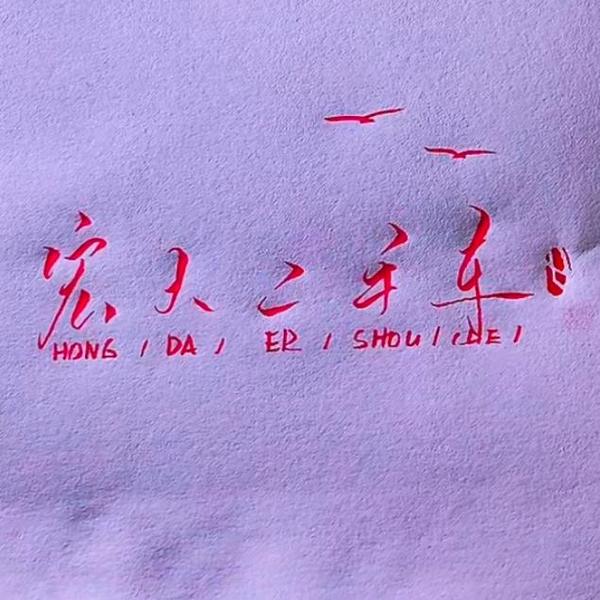 宏大二手车
HONG / DA / ER / SHOU /